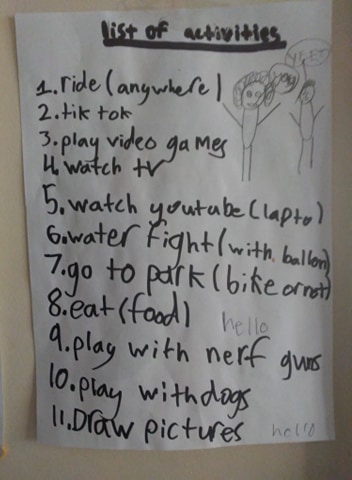 list of activities
YEET
1.ride (anywhere)
2.tik tok
3.play video games
4.watch tv
5.watch youtube (lapto)
6.water fight (with ballon)
7.go to park (bike or not)
8.eat (food)
hello
9.play with nerf guns
10.play with dogs
11.Draw pictures
hello